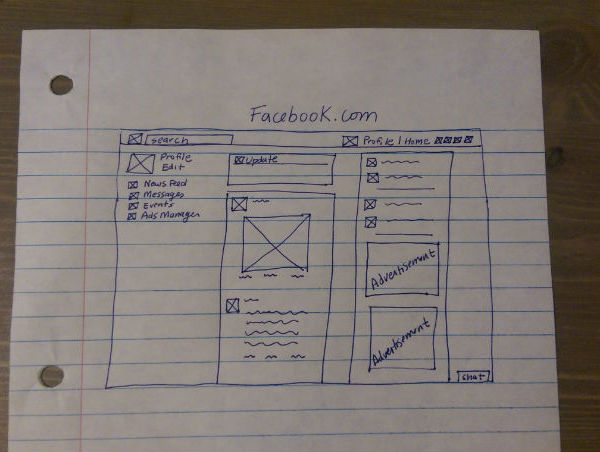 Facebook.com
search
Profile | Home
Profile
Edit
News Feed
Messages
Events
Ads Manager
Update
Advertisement
Advertisement
chat